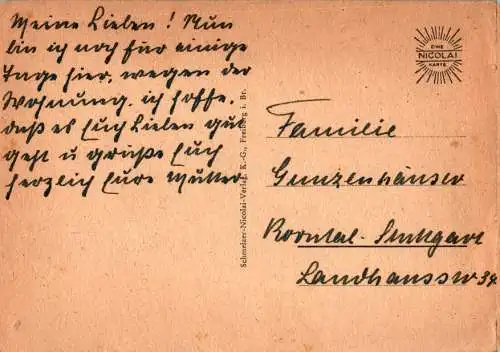 Meine Lieben! Nun
bin ich noch für einige
Tage hier, wegen der
Wohnung. ich hoffe,
daß es Euch Lieben gut
geht u grüße Euch
herzlich Eure Mutter
EINE
NICOLAI
KARTE
Schmelzer-Nicolai-Verlag K.-G., Freiburg i. Br.
Familie
Gunzenhäuser
Korntal-Stuttgart
Landhausstr 34